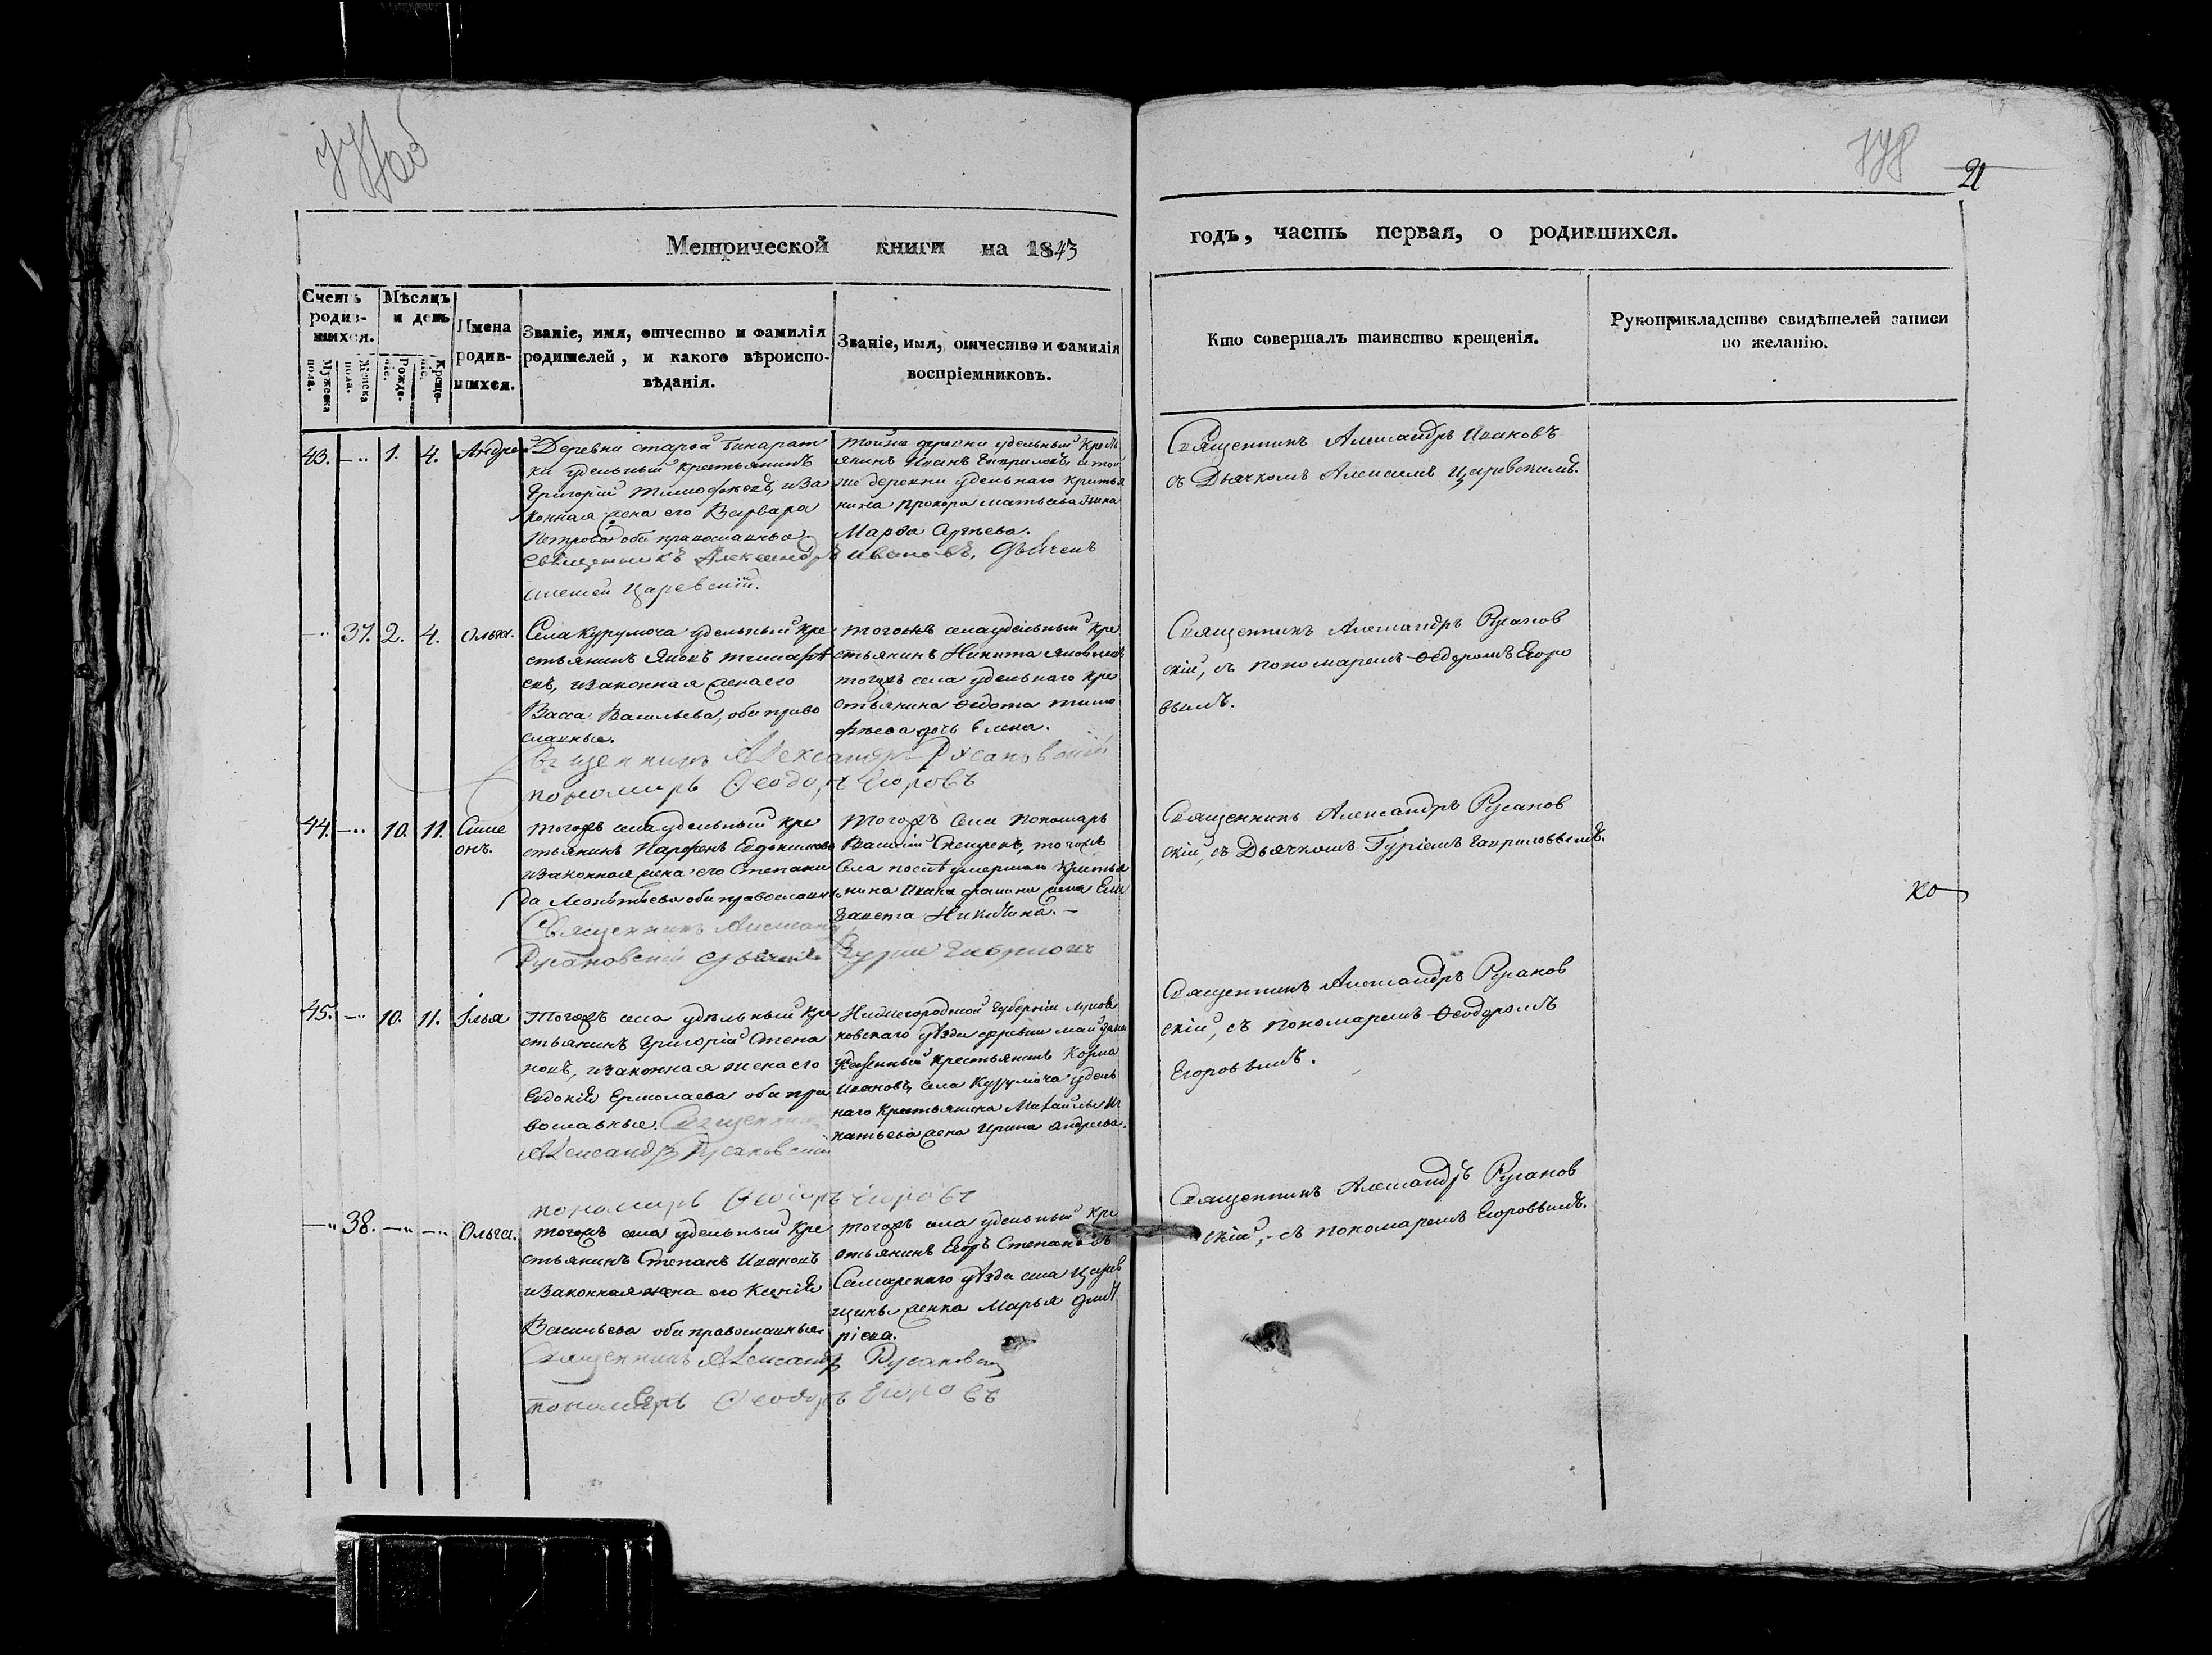 21
Метрической книги на 1843
годъ, часть первая, о родившихся.
Счетъ родив-шихся.
Мужеска пола.
Женска пола.
Мѣсяцъ и день
Рожде-нія.
Креще-нія.
Имена родив-шихся.
Званіе, имя, отчество и фамилія
родителей, и какого вѣроиспо-
вѣданія.
Званіе, имя, отчество и фамилія
воспріемниковъ.
Кто совершалъ таинство крещенія.
Рукоприкладство свидѣтелей записи
по желанію.
43. 1. 4. Андрей
Деревни старой Бинарат
ки удельный крестьянинъ
Григорій Тимофеевъ, иза
конная жена его Варвара
Петрова оба православные.
Священникъ Александръ Ивановъ, Дьячекъ
Алексей Царевскій.
Тойже деревни удельный Кресть
янинъ Иванъ Гавриловъ, и той
же деревни удельнаго крестья
нина Прокора Матвеева жена
Марфа
Священникъ Александръ Ивановъ
съ Дьячкомъ Алексеемъ Царевскимъ.
37. 2. 4. Ольга.
Села Курумоча удельный кре
стьянинъ Яковъ
евъ, изаконная жена его
Васса Васильева, оба право
славные.
Священникъ Александръ Русановскій
пономарь Феодоръ Егоровъ
Тогожъ села удельный кре
стьянинъ Никита Яковлевъ
тогожъ села удельнаго кре
стьянина Федота Тимо
феева дочь Елена.
Священникъ Александръ Русанов
скій, съ пономаремъ Феодоромъ Егоро
вымъ.
44. 10. 11. Симе
онъ.
Тогожъ села удельный кре
стьянинъ Парфенъ Евдокимовъ
изаконная жена его Степани
да Леонтьева оба православные
Священникъ Александръ
Русановскій Дьячекъ Гурій Гавриловъ
Тогожъ Села пономарь
Василій тогожъ
Села после умершаго Крестья
нина Ивана жена Ели
завета Никитина.
Священникъ Александръ Русанов
скій, съ Дьячкомъ Гуріемъ Гавриловымъ.
45. 10. 11. Ілья
Тогожъ села удѣльный кре
стьянинъ Григорій Степа
новъ, изаконная жена его
Евдокія Ермолаева оба пра
вославные. Священникъ
Александръ Русановскій
пономарь Феодоръ Егоровъ
Нижегородской Губерніи Лукоя
новскаго уѣзда деревни Майдана
Казенный Крестьянинъ Козма
Ивановъ, села Курумоча удель
наго Крестьянина Михаилы Иг
натьева жена Ирина Андреева.
Священникъ Александръ Русанов
скій, съ пономаремъ Феодоромъ
Егоровымъ.
38. Ольга.
Тогожъ села удельный кре
стьянинъ Степанъ Ивановъ
изаконная жена его Ксенія
Васильева оба православные
Священникъ Александръ Русановскій
пономарь Феодоръ Егоровъ
Тогожъ села удельный кре
стьянинъ Егоръ Степановъ
Самарскаго уѣзда села Царев
щины женка Марья Дмит
ріева.
Священникъ Александръ Русанов
скій, съ пономаремъ Егоровымъ.